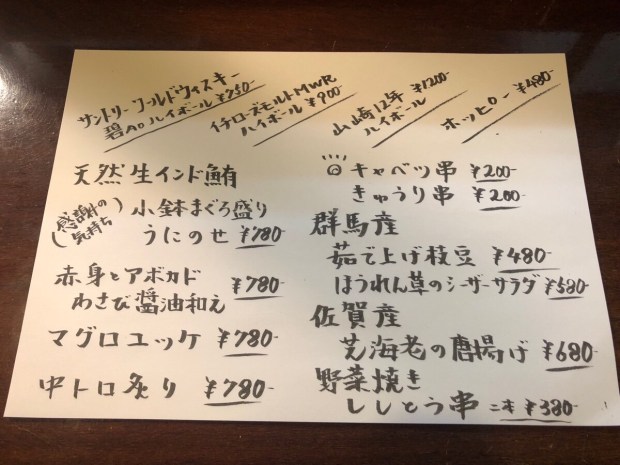 サントリーワールドウイスキー
碧Ao ハイボール ¥750-
イチローズモルトMWR
ハイボール ¥900
山崎12年 ¥1200-
ハイボール
ホッピー ¥480-
天然生インド鮪
(感謝の気持ち) 小鉢まぐろ盛り
うにのせ ¥780-
赤身とアボカド
わさび醤油和え ¥780-
マグロユッケ ¥780-
中トロ炙り ¥780-
キャベツ串 ¥200-
きゅうり串 ¥200-
群馬産
茹で上げ枝豆 ¥480-
ほうれん草のシーザーサラダ ¥580-
佐賀産
芝海老の唐揚げ ¥680-
野菜焼き
ししとう串 二本 ¥380-